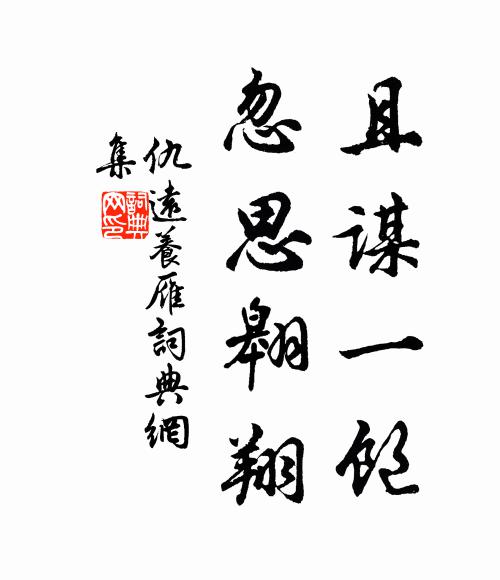 且谋一饱
忽思翱翔
仇遠養雁詞典網
集
詞典
网印